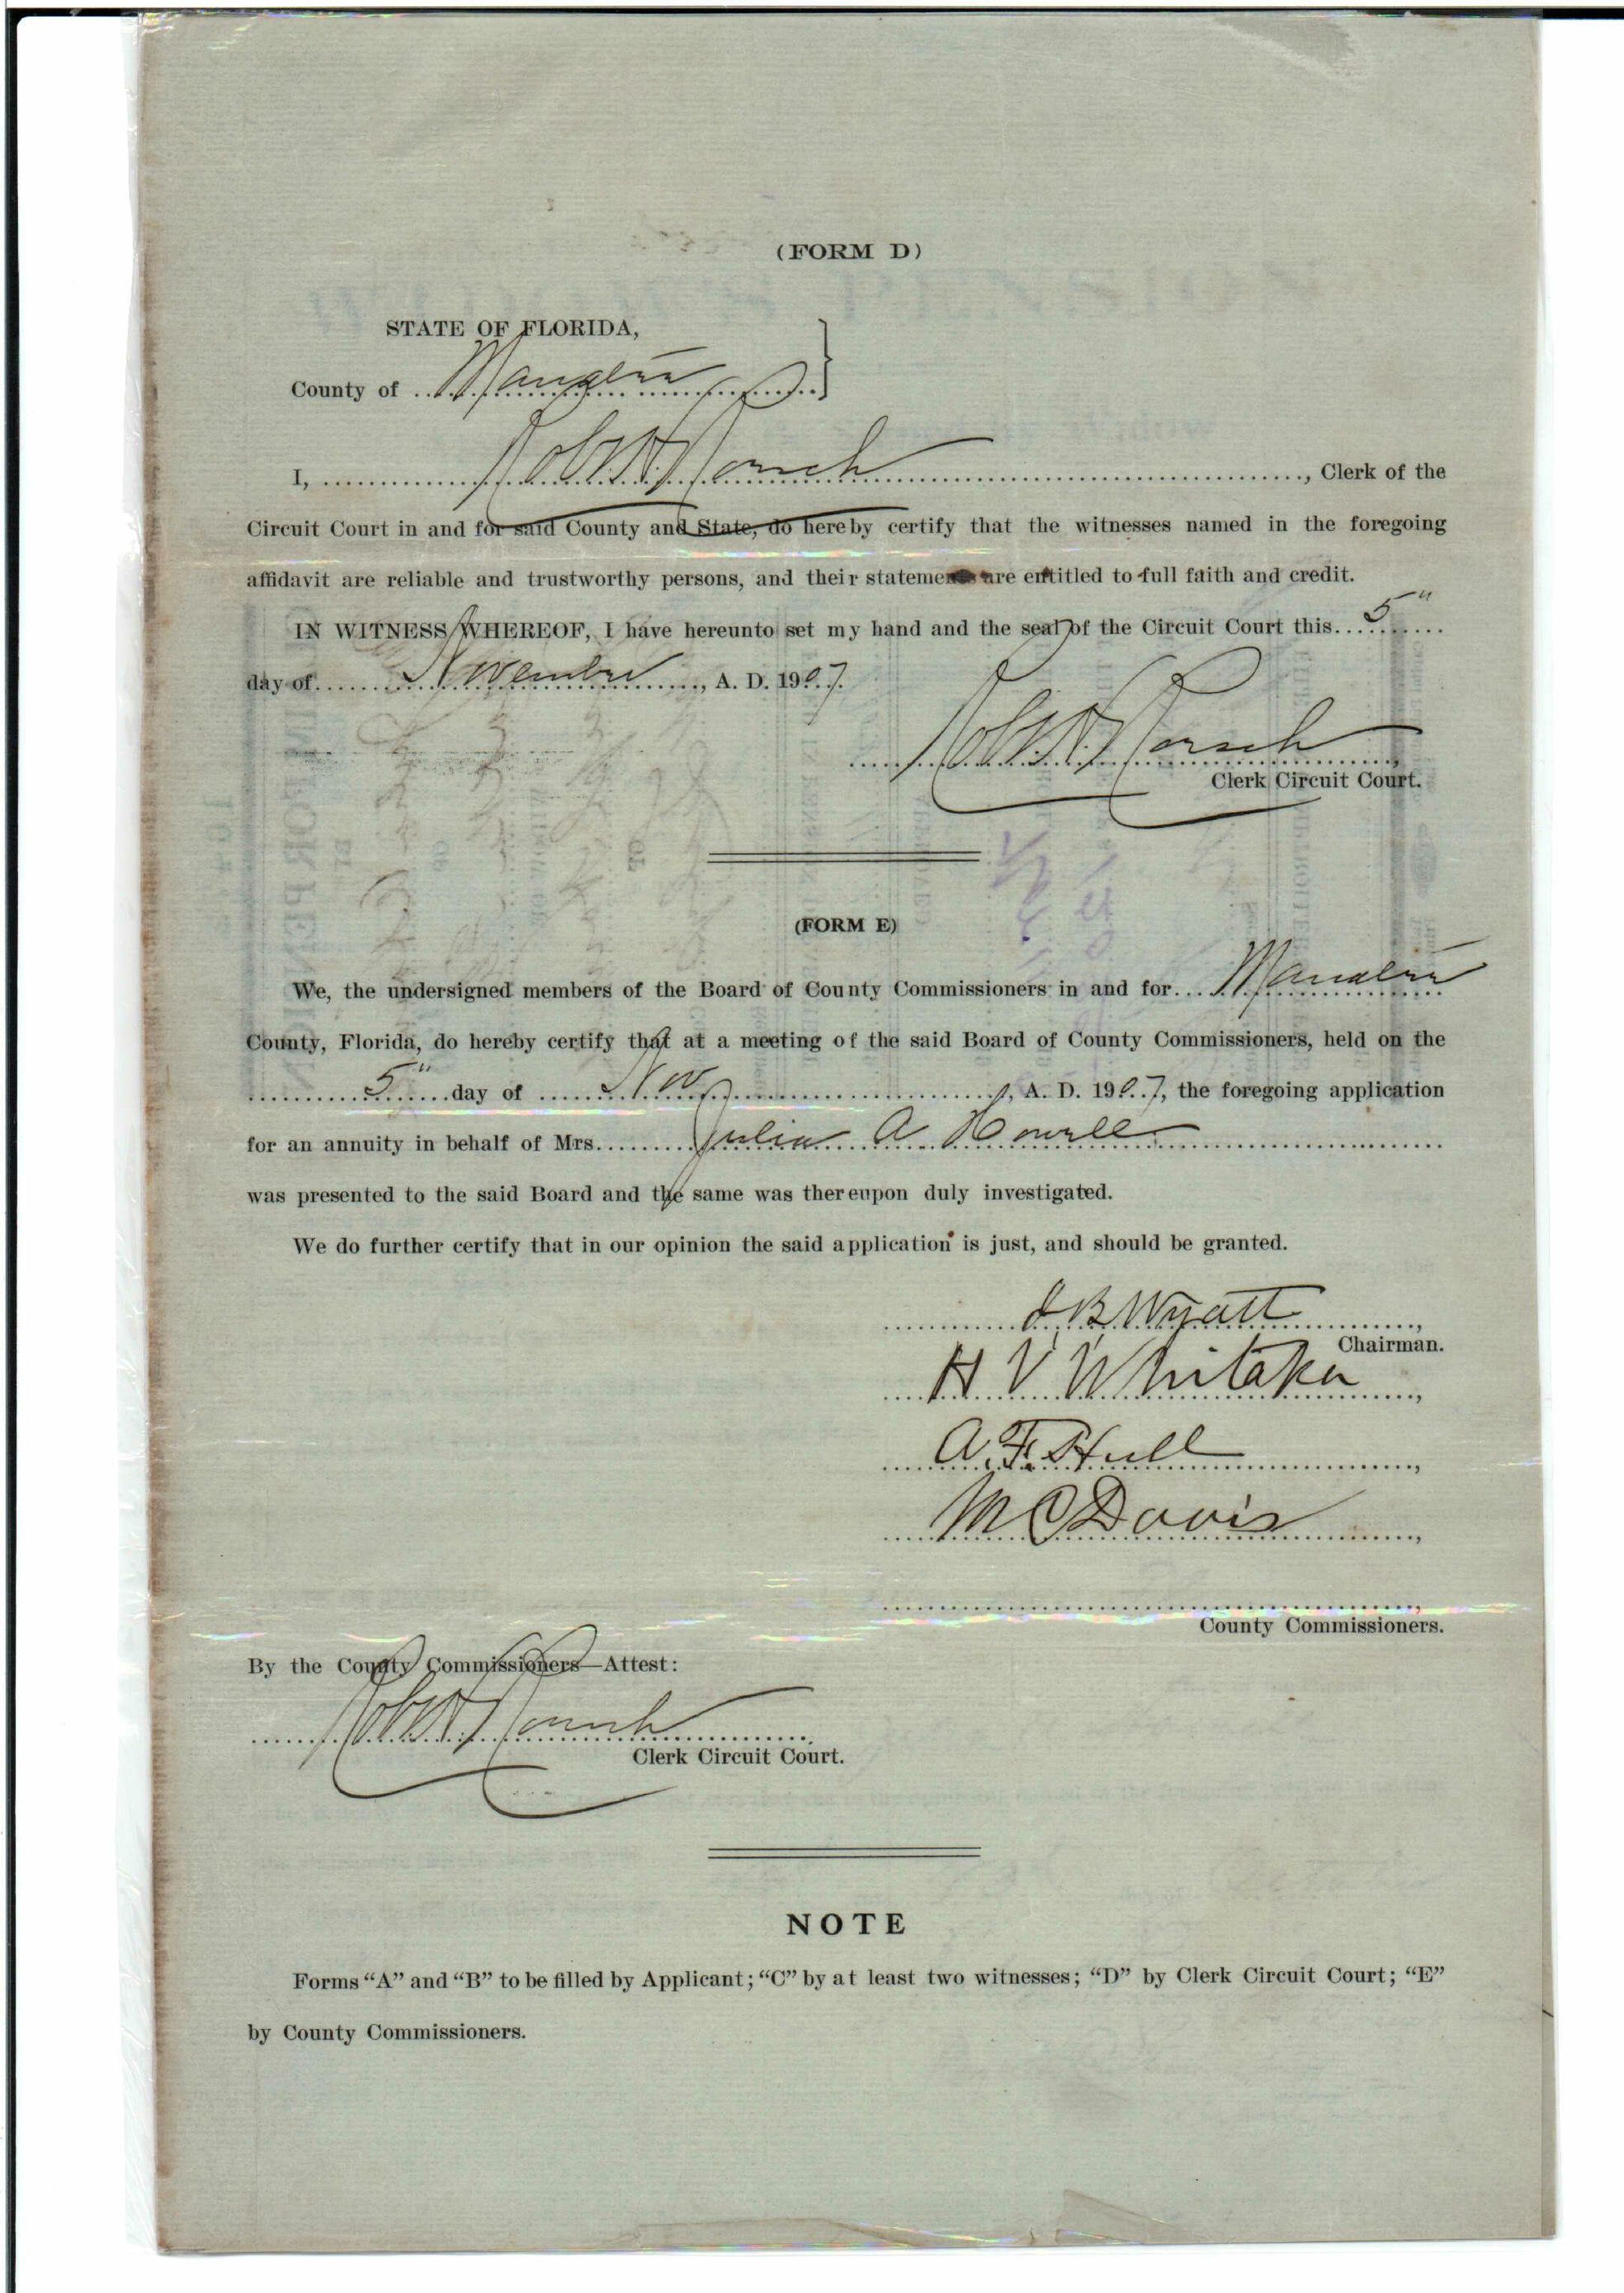 (FORM D)
STATE OF FLORIDA,
County of Manatee
I, Robt. H. Roesch, Clerk of the
Circuit Court in and for said County and State, do hereby certify that the witnesses named in the foregoing
affidavit are reliable and trustworthy persons, and their statements are entitled to full faith and credit.
IN WITNESS WHEREOF, I have hereunto set my hand and the seal of the Circuit Court this 5"
day of November, A. D. 1907.
Robt. H. Roesch
Clerk Circuit Court.
(FORM E)
We, the undersigned members of the Board of County Commissioners in and for Manatee
County, Florida, do hereby certify that at a meeting of the said Board of County Commissioners, held on the
5" day of Nov, A. D. 1907, the foregoing application
for an annuity in behalf of Mrs. Julia A Howell
was presented to the said Board and the same was thereupon duly investigated.
We do further certify that in our opinion the said application is just, and should be granted.
J B Wyatt,
Chairman.
H V Whitaker,
A. F. Hull,
M C Davis,
County Commissioners.
By the County Commissioners—Attest:
Robt. H. Roesch
Clerk Circuit Court.
NOTE
Forms “A” and “B” to be filled by Applicant; “C” by at least two witnesses; “D” by Clerk Circuit Court; “E”
by County Commissioners.